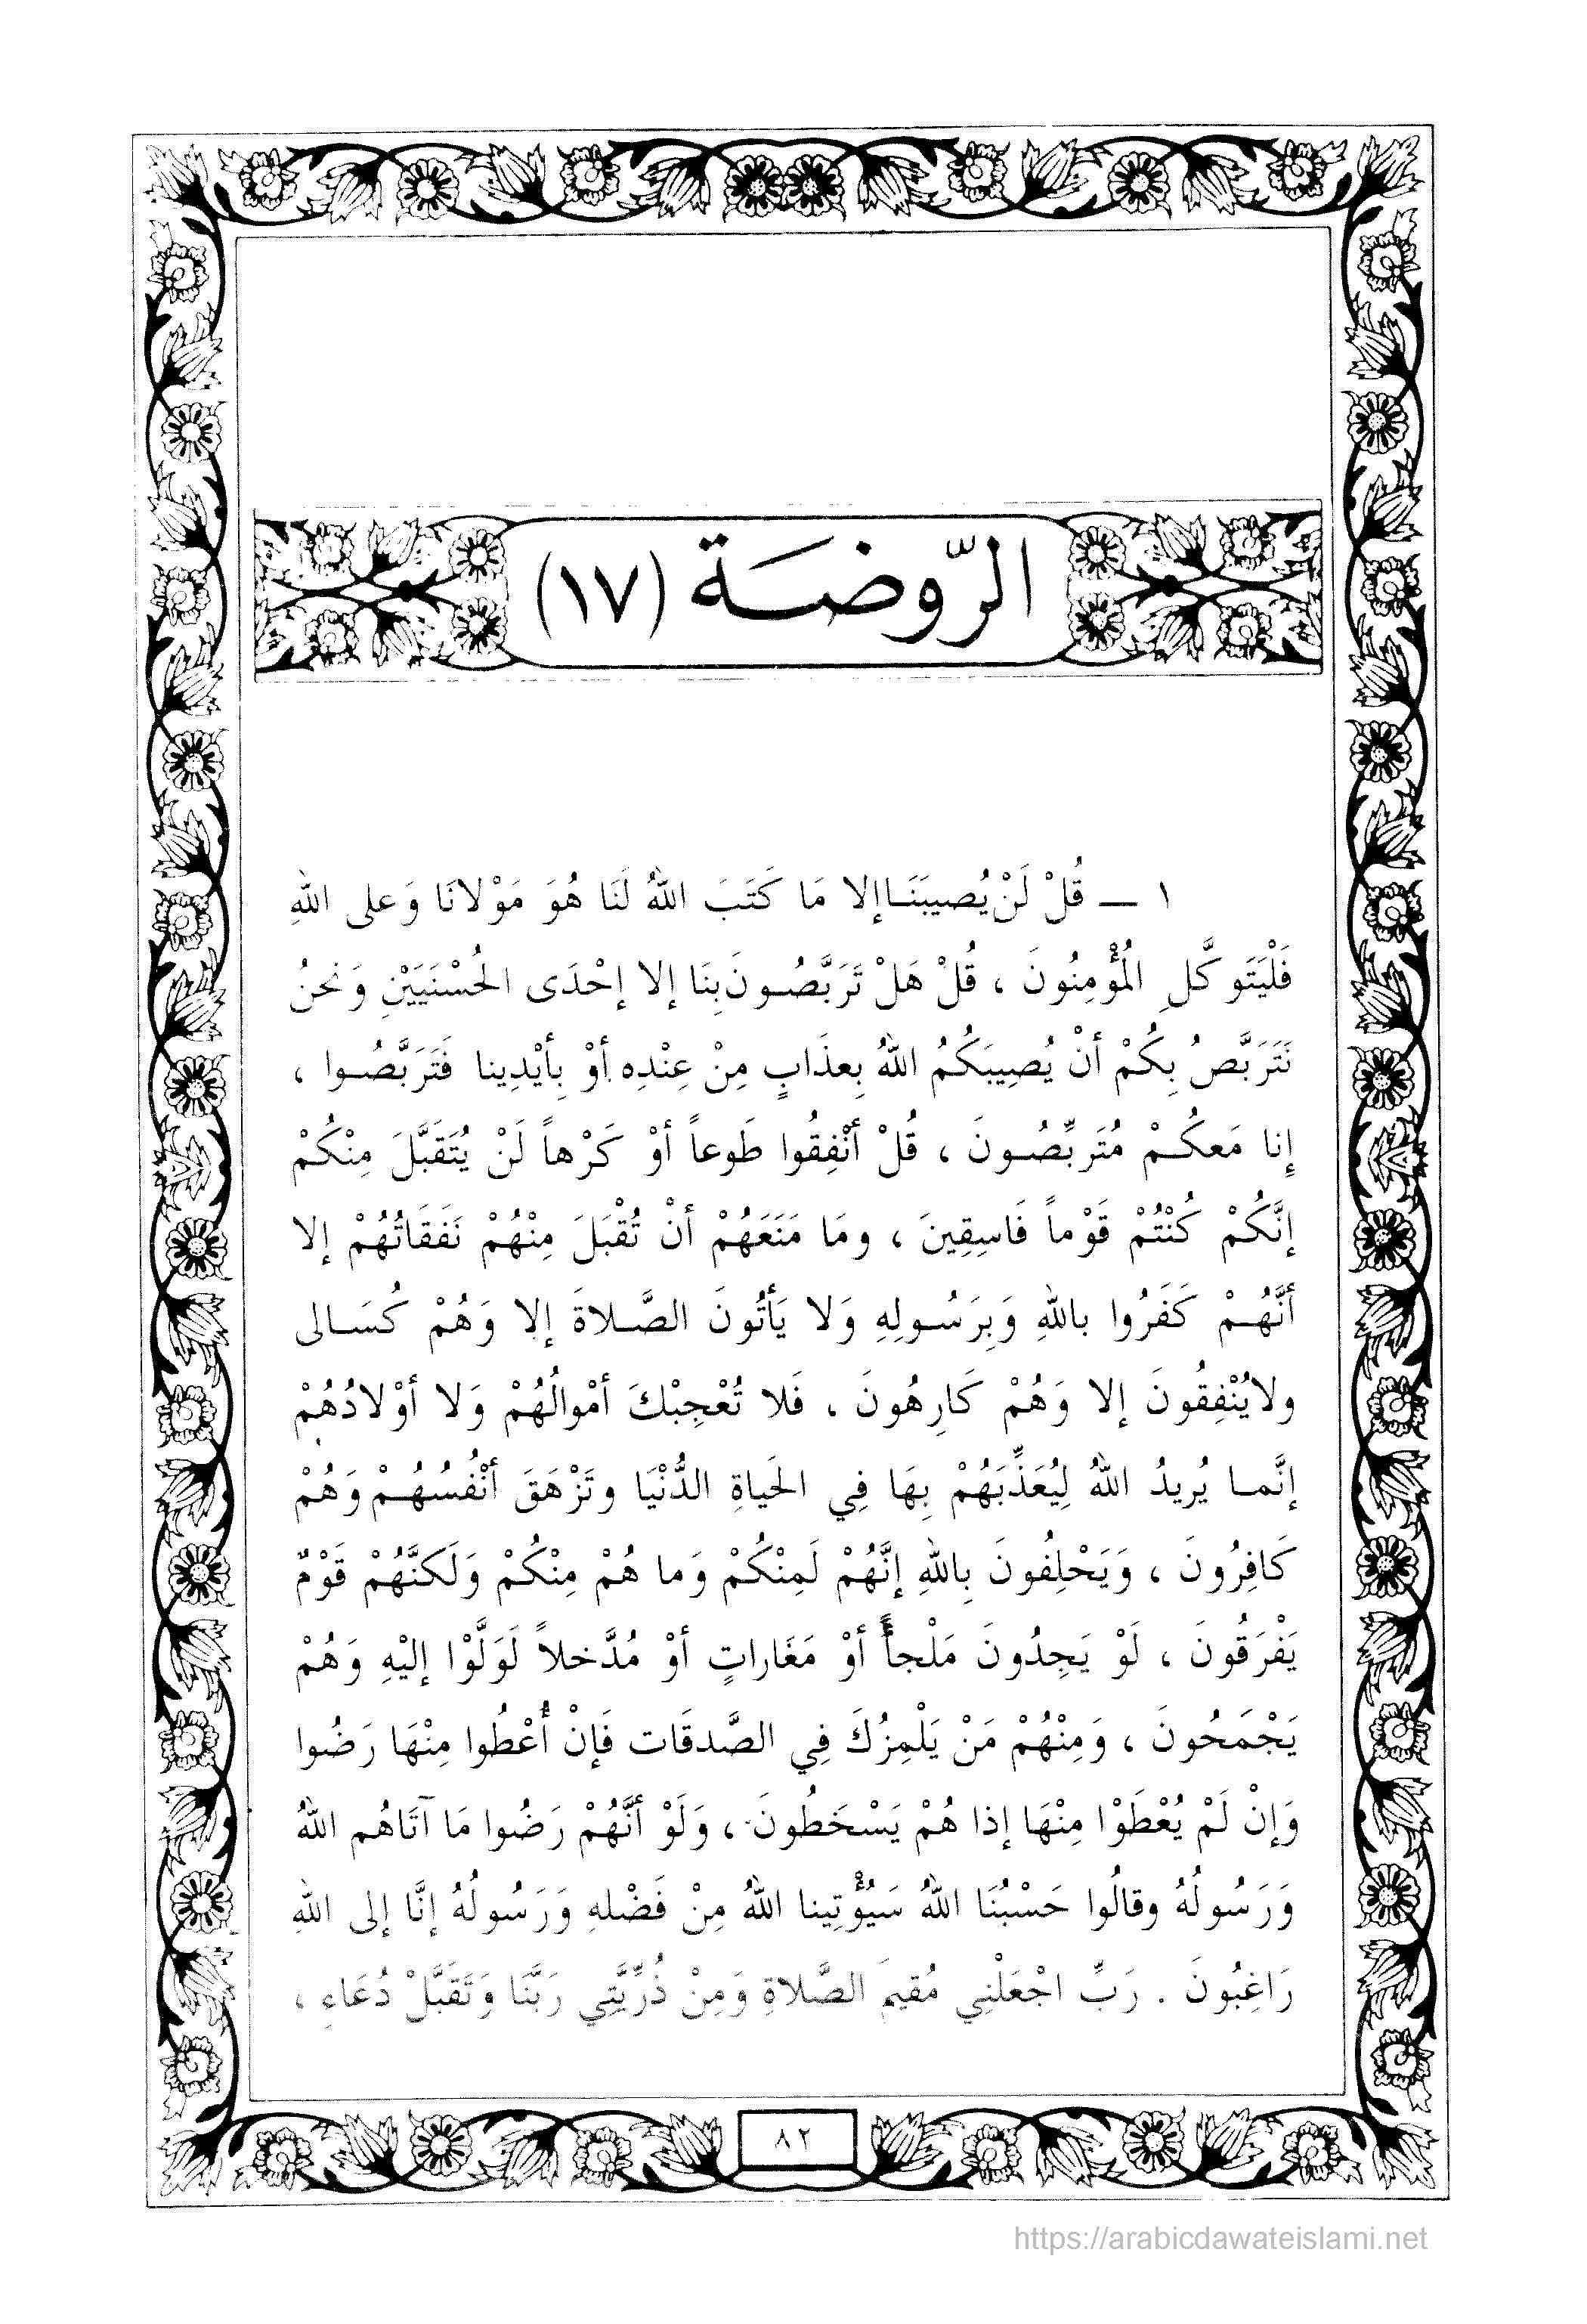 الرّوضة (١٧)
١ ــ قُلْ لَنْ يُصيبَنَا إلا مَا كَتَبَ اللهُ لَنَا هُوَ مَوْلانَا وَعلى اللهِ
فَلْيَتَوكَّلِ المُؤْمِنُونَ ، قُلْ هَلْ تَرَبَّصُونَ بِنَا إلا إحْدَى الحُسْنَيَيْنِ وَنحنُ
نَتَرَبَّصُ بِكُمْ أنْ يُصِيبَكُمُ اللهُ بِعذَابٍ مِنْ عِنْدِه أوْ بِأيْدِينا فَتَرَبَّصُوا ،
إنا مَعكُمْ مُتَربِّصُونَ ، قُلْ أنْفِقُوا طَوعاً أوْ كَرْهاً لَنْ يُتَقَبَّلَ مِنْكُمْ
إنَّكُمْ كُنْتُمْ قَوْماً فَاسِقِينَ ، ومَا مَنَعَهُمْ أنْ تُقْبَلَ مِنْهُمْ نَفَقَاتُهُمْ إلا
أنَّهُمْ كَفَرُوا باللهِ وَبِرَسُولِهِ وَلا يَأتُونَ الصَّلاةَ إلا وَهُمْ كُسَالى
ولا يُنْفِقُونَ إلا وَهُمْ كَارِهُونَ ، فَلا تُعْجِبْكَ أمْوالُهُمْ وَلا أوْلادُهُمْ
إنَّما يُريدُ اللهُ لِيُعَذِّبَهُمْ بِهَا فِي الحَياةِ الدُّنْيَا وتَزْهَقَ أنْفُسُهُمْ وَهُمْ
كَافِرُونَ ، وَيَحْلِفُونَ بِاللهِ إنَّهُمْ لَمِنْكُمْ وَما هُمْ مِنْكُمْ وَلَكنَّهُمْ قَوْمٌ
يَفْرَقُونَ ، لَوْ يَجِدُونَ مَلْجأً أوْ مَغَاراتٍ أوْ مُدَّخلاً لَوَلَّوْا إليْهِ وَهُمْ
يَجْمَحُونَ ، وَمِنْهُمْ مَنْ يَلْمِزُكَ فِي الصَّدقَات فَإنْ أُعْطُوا مِنْهَا رَضُوا
وَإنْ لَمْ يُعْطَوْا مِنْهَا إذا هُمْ يَسْخَطُونَ ، وَلَوْ أنَّهُمْ رَضُوا مَا آتَاهُم اللهُ
وَرَسُولُهُ وقالُوا حَسْبُنَا اللهُ سَيُؤْتِينا اللهُ مِنْ فَضْلهِ وَرَسُولُهُ إنَّا إلى اللهِ
رَاغِبُونَ . رَبِّ اجْعَلْنِي مُقيمَ الصَّلاةِ وَمِنْ ذُرِّيَّتِي رَبَّنَا وَتَقَبَّلْ دُعَاءِ ،
٨٢
https://arabicdawateislami.net